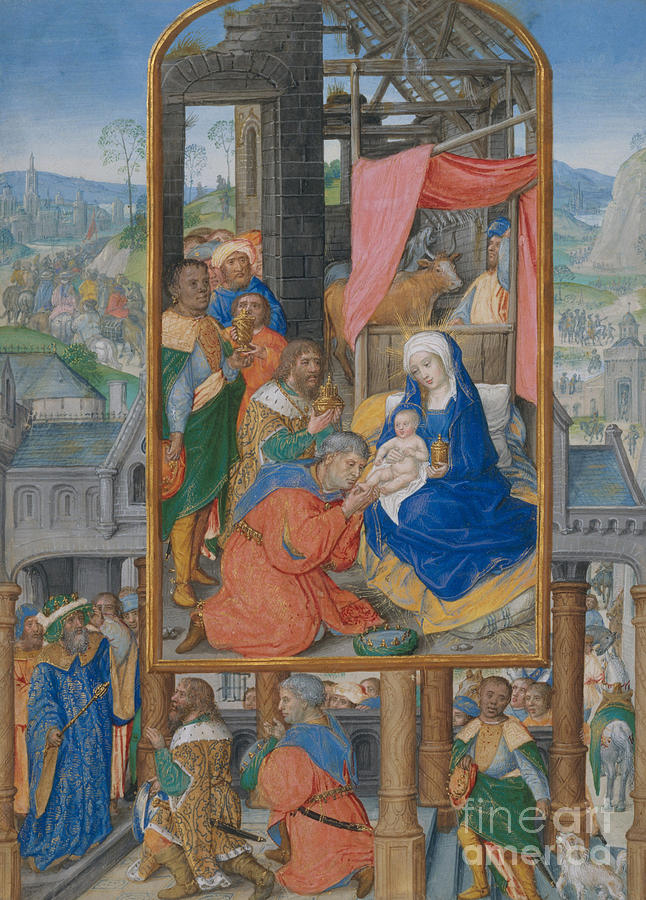 fine art
america